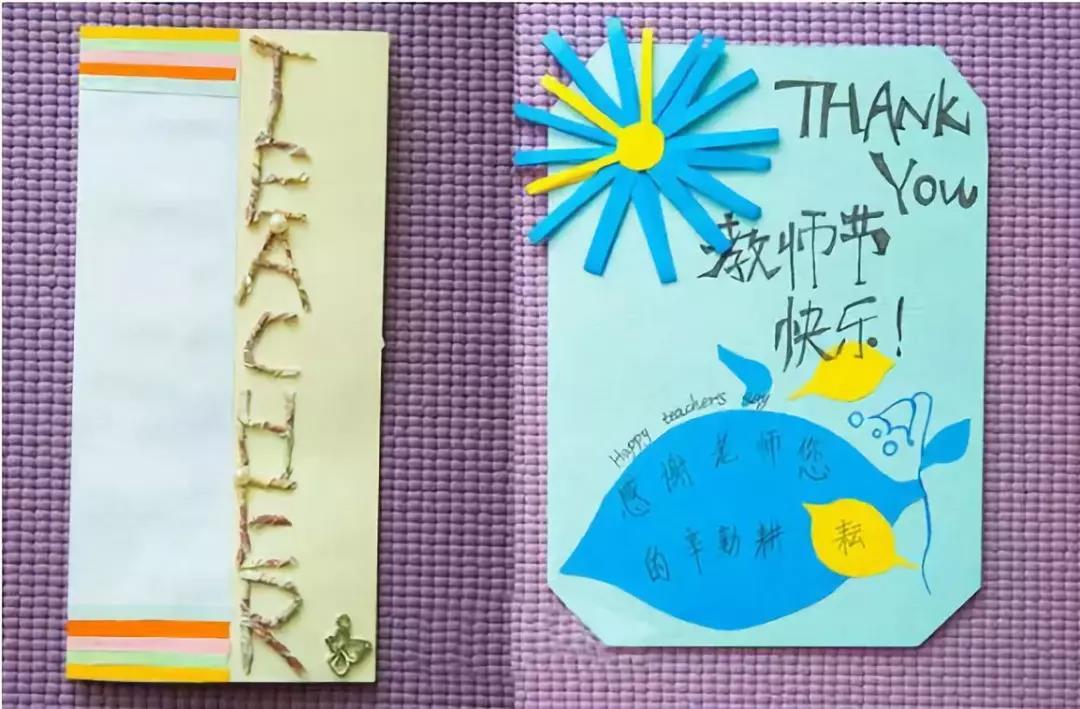 TEACHER
THANK
You
教师节
快乐!
Happy teachers day
感谢老师您
的辛勤耕耘